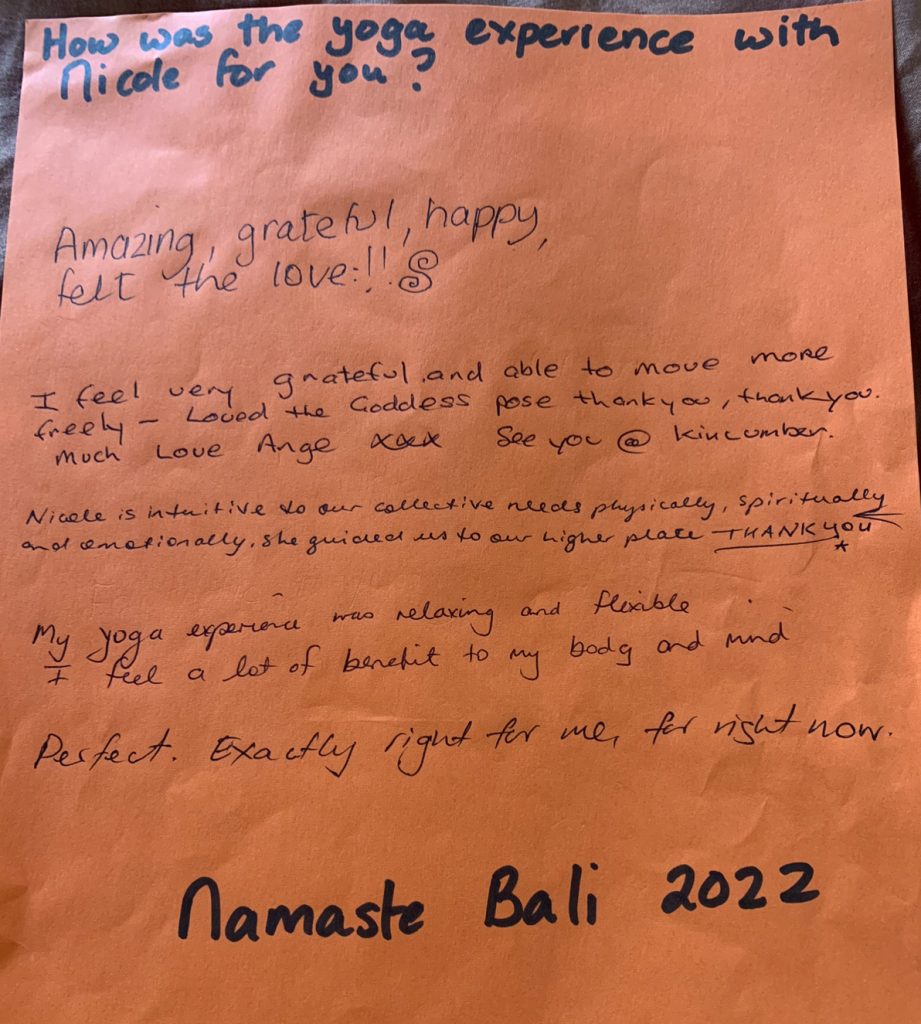 How was the yoga experience with
Nicole for you?
Amazing, grateful, happy,
felt the love:!!
I feel very grateful and able to move more
freely - Loved the Goddess pose thankyou, thankyou.
Much Love Ange xxx See you @ Kincumber.
Nicole is intuitive to our collective needs physically, spiritually
and emotionally, she guided us to our higher place THANK YOU
My yoga experience was relaxing and flexible
I feel a lot of benefit to my body and mind
Perfect. Exactly right for me, for right now.
Namaste Bali 2022